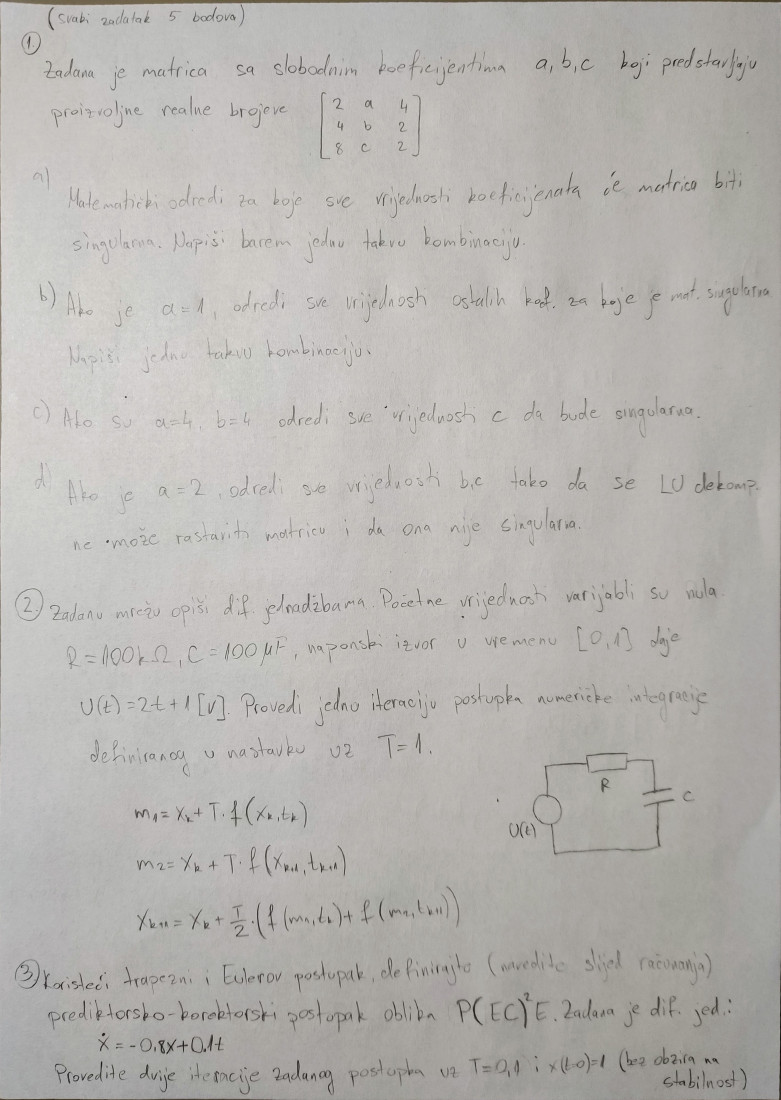 (svaki zadatak 5 bodova)
1.
Zadana je matrica sa slobodnim koeficijentima a, b, c koji predstavljaju
proizvoljne realne brojeve
[2 a 4
4 b 2
8 c 2]
a) Matematički odredi za koje sve vrijednosti koeficijenata će matrica biti
singularna. Napiši barem jednu takvu kombinaciju.
b) Ako je a=1, odredi sve vrijednosti ostalih koef. za koje je mat. singularna
Napiši jednu takvu kombinaciju.
c) Ako su a=4, b=4 odredi sve vrijednosti c da bude singularna.
d) Ako je a=2, odredi sve vrijednosti b,c tako da se LU dekomp.
ne može rastaviti matricu i da ona nije singularna.
2. Zadanu mrežu opiši dif. jednadžbama. Početne vrijednosti varijabli su nula.
R=100kΩ, C=100μF, naponski izvor u vremenu [0,1] daje
U(t)=2t+1[V]. Provedi jednu iteraciju postupka numeričke integracije
definiranog u nastavku uz T=1.
m₁=xₖ+T·f(xₖ,tₖ)
m₂=xₖ+T·f(xₖ₊₁,tₖ₊₁)
xₖ₊₁=xₖ+T/2·(f(m₁,tₖ)+f(m₂,tₖ₊₁))
R
C
U(t)
3. Koristeći trapezni i Eulerov postupak, definirajte (navedite slijed računanja)
prediktorsko-korektorski postupak oblika P(EC)²E. Zadana je dif. jed.:
ẋ=-0.8x+0.1t
Provedite dvije iteracije zadanog postupka uz T=0,1 i x(t=0)=1 (bez obzira na
stabilnost)